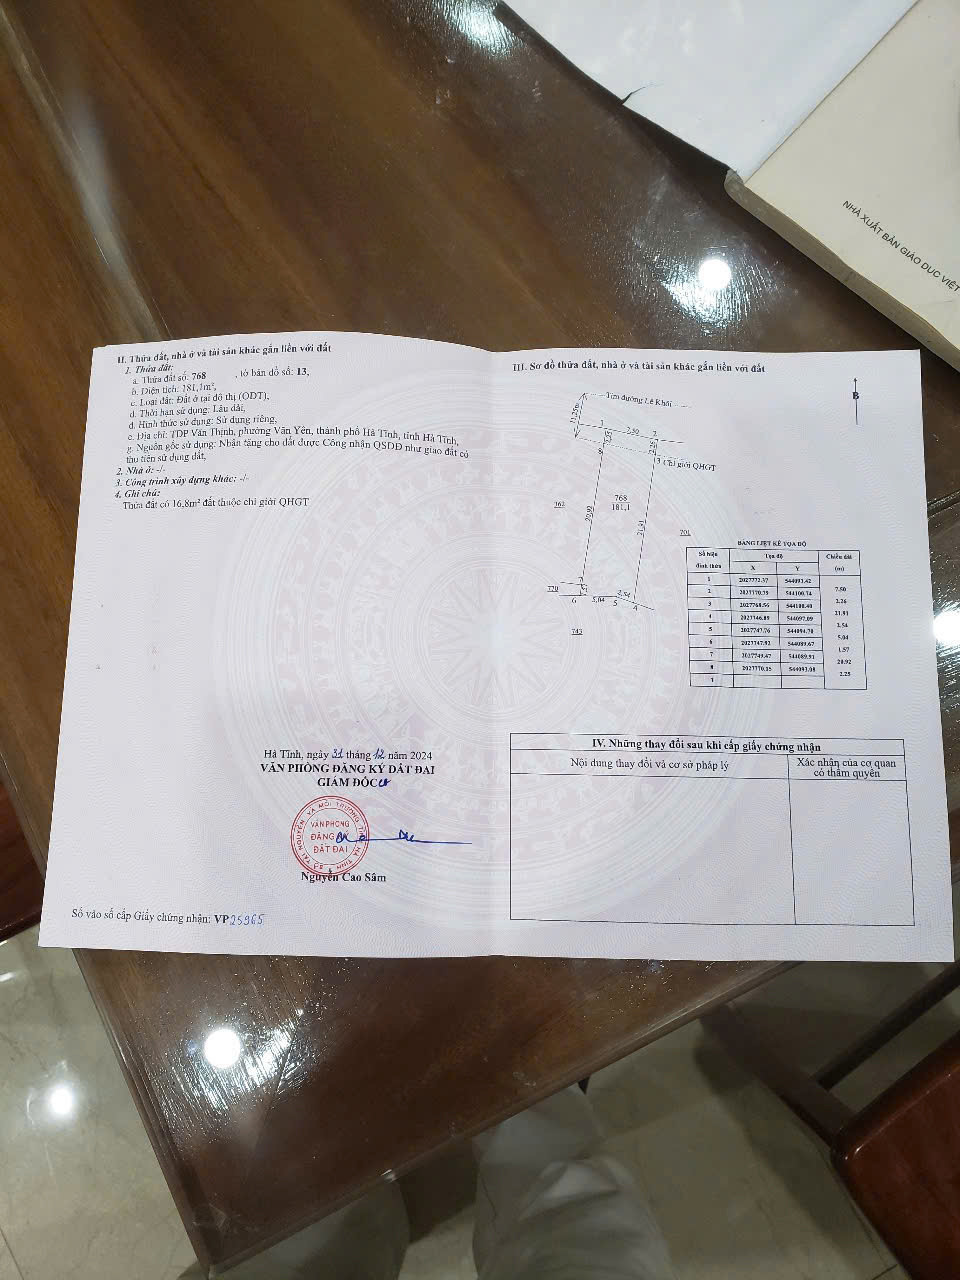 NHÀ XUẤT BẢN GIÁO DỤC VIỆT
II. Thửa đất, nhà ở và tài sản khác gắn liền với đất
1. Thửa đất:
a. Thửa đất số: 768 , tờ bản đồ số: 13,
b. Diện tích: 181,1m²,
c. Loại đất: Đất ở tại đô thị (ODT),
d. Thời hạn sử dụng: Lâu dài,
đ. Hình thức sử dụng: Sử dụng riêng,
e. Địa chỉ: TDP Văn Thịnh, phường Văn Yên, thành phố Hà Tĩnh, tỉnh Hà Tĩnh,
g. Nguồn gốc sử dụng: Nhận tặng cho đất được Công nhận QSDĐ như giao đất có
thu tiền sử dụng đất,
2. Nhà ở: -/-
3. Công trình xây dựng khác: -/-
4. Ghi chú:
Thửa đất có 16,8m² đất thuộc chỉ giới QHGT
Hà Tĩnh, ngày 31 tháng 12 năm 2024
VĂN PHÒNG ĐĂNG KÝ ĐẤT ĐAI
GIÁM ĐỐC
VĂN PHÒNG
ĐĂNG KÝ
ĐẤT ĐAI
Nguyễn Cao Sâm
Số vào sổ cấp Giấy chứng nhận: VP25965
III. Sơ đồ thửa đất, nhà ở và tài sản khác gắn liền với đất
B
Tim đường Lê Khôi
1 7,50 2
8
3 Chỉ giới QHGT
768
181,1
762
20,92
21,91
701
770
7
6 5,04 5 2,54 4
743
BẢNG LIỆT KÊ TỌA ĐỘ
Số hiệu đỉnh thửa Tọa độ Chiều dài (m)
X Y
1 2027772.37 544093.42
7.50
2 2027770.79 544100.74
2.26
3 2027768.56 544100.40
21.91
4 2027746.89 544097.09
2.54
5 2027747.76 544094.70
5.04
6 2027747.92 544089.67
1.57
7 2027749.47 544089.91
20.92
8 2027770.15 544093.08
2.25
1
IV. Những thay đổi sau khi cấp giấy chứng nhận
Nội dung thay đổi và cơ sở pháp lý
Xác nhận của cơ quan
có thẩm quyền